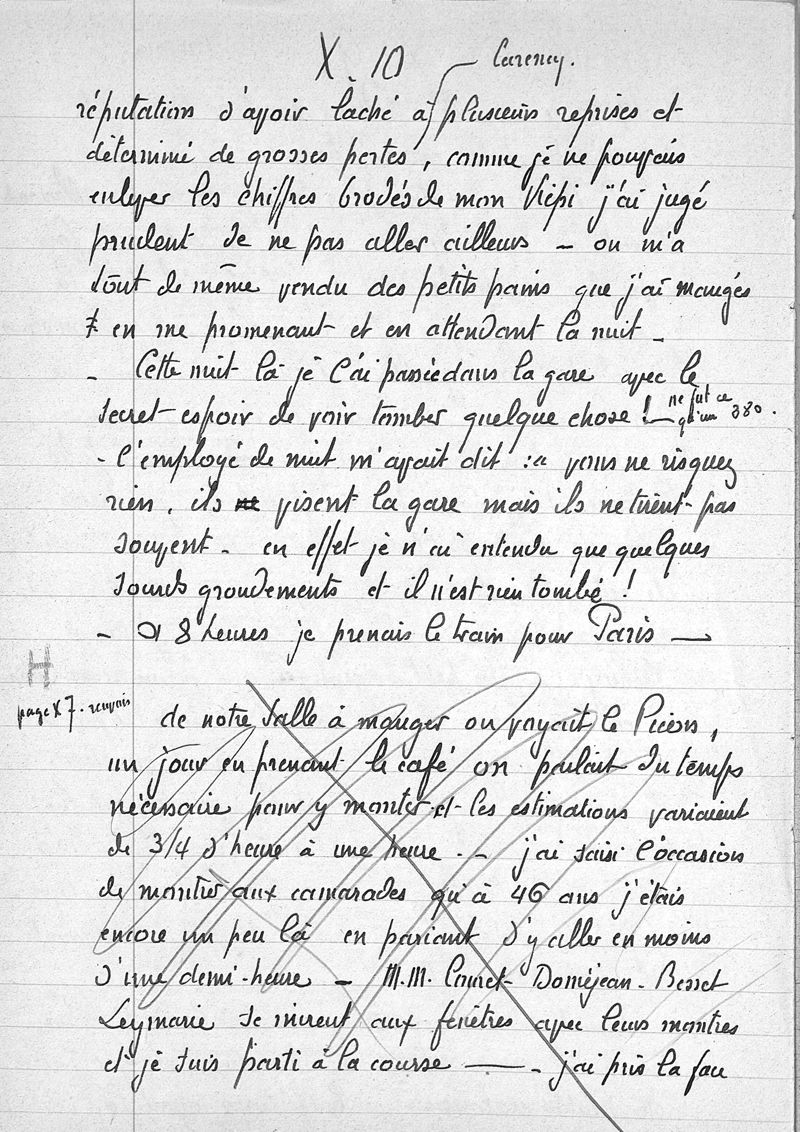 X. 10
Carency.
réputations d'avoir laché à plusieurs reprises et
déterminé de grosses pertes, comme je ne pouvais
enlever les chiffres brodés de mon Képi j'ai jugé
prudent de ne pas aller ailleurs — on m'a
tout de même vendu des petits pains que j'ai mangés
en me promenant et en attendant la nuit —
- Cette nuit là je l'ai passée dans la gare avec le
secret espoir de voir tomber quelque chose ! ne fut ce
qu'un 380.
- l'employé de nuit m'avait dit : « vous ne risquez
rien, ils visent la gare mais ils ne tirent pas
souvent - en effet je n'ai entendu que quelques
sourds grondements et il n'est rien tombé !
- à 8 heures je prenais le train pour Paris —
H
page X 7 -
de notre salle à manger on voyait le
un jour en prenant le café on parlait du temps
nécessaire pour y monter et les estimations variaient
de 3/4 d'heure à une heure - j'ai saisi l'occasion
de montrer aux camarades qu'à 46 ans j'étais
encore un peu là en pariant d'y aller en moins
d'une demi-heure — M.M. Doméjean - Besset
Leymarie se mirent aux fenêtres avec leurs montres
et je suis parti à la course — j'ai pris la